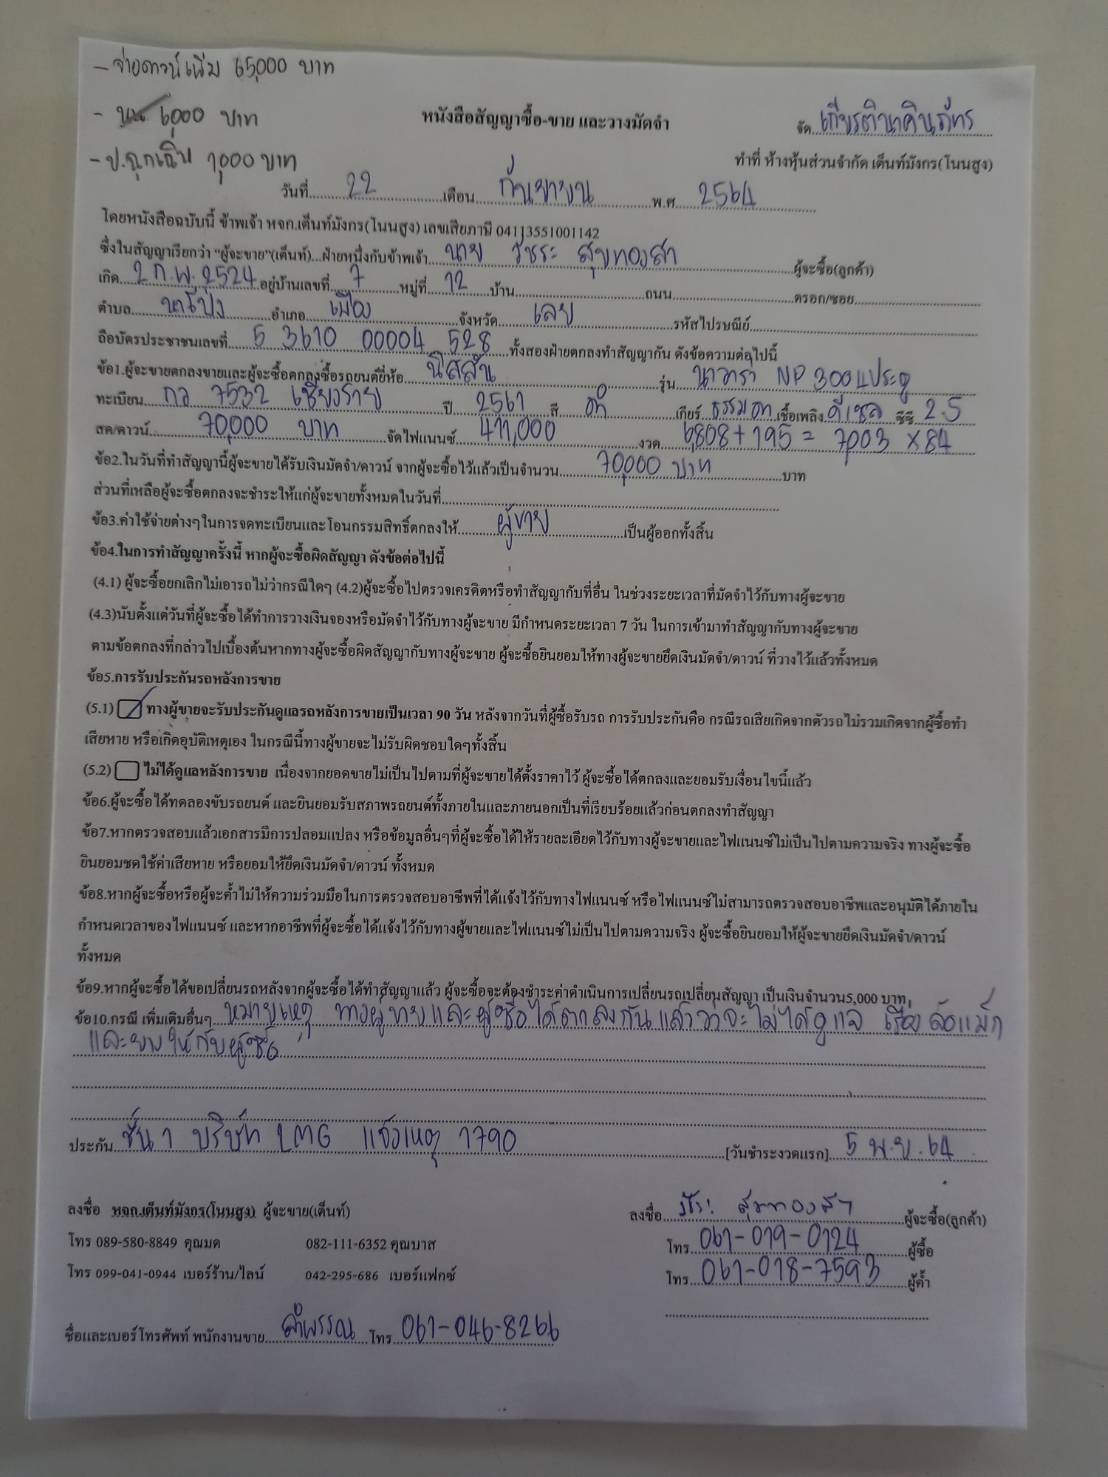 - จ่ายดาวน์เพิ่ม 65,000 บาท
- 6,000 บาท
- ป.ฉุกเฉิน 1,000 บาท
หนังสือสัญญาซื้อ-ขาย และวางมัดจำ
จัด เกียรตินาคินภัทร
ทำที่ ห้างหุ้นส่วนจำกัด เต็นท์มังกร(โนนสูง)
วันที่ 22 เดือน กันยายน พ.ศ. 2564
โดยหนังสือฉบับนี้ ข้าพเจ้า หจก.เต็นท์มังกร(โนนสูง) เลขเสียภามี 04113551001142
ซึ่งในสัญญาเรียกว่า "ผู้จะขาย"(เต็นท์)...ฝ่ายหนึ่งกับข้าพเจ้า นาย วัชระ สุขทองสา ผู้จะซื้อ(ลูกค้า)
เกิด 2 ก.พ. 2524 อยู่บ้านเลขที่ 7 หมู่ที่ 12 บ้าน ถนน ตรอก/ซอย
ตำบล นาโป่ง อำเภอ เมือง จังหวัด เลย รหัสไปรษณีย์
ถือบัตรประชาชนเลขที่ 5 3610 00004 528 ทั้งสองฝ่ายตกลงทำสัญญากัน ดังข้อความต่อไปนี้
ข้อ1.ผู้จะขายตกลงขายและผู้จะซื้อตกลงซื้อรถยนต์ยี่ห้อ นิสสัน รุ่น นาวาร่า NP 300 4ประตู
ทะเบียน กว 7532 เชียงราย ปี 2561 สี ดำ เกียร์ ธรรมดา เชื้อเพลิง ดีเซล ซีซี 2.5
สด/ดาวน์ 70,000 บาท จัดไฟแนนซ์ 411,000 งวด 6808+195 = 7,003 x 84
ข้อ2.ในวันที่ทำสัญญานี้ผู้จะขายได้รับเงินมัดจำ/ดาวน์ จากผู้จะซื้อไว้แล้วเป็นจำนวน 70,000 บาท บาท
ส่วนที่เหลือผู้จะซื้อตกลงจะชำระให้แก่ผู้จะขายทั้งหมดในวันที่
ข้อ3.ค่าใช้จ่ายต่างๆในการจดทะเบียนและโอนกรรมสิทธิ์ตกลงให้ ผู้ขาย เป็นผู้ออกทั้งสิ้น
ข้อ4.ในการทำสัญญาครั้งนี้ หากผู้จะซื้อผิดสัญญา ดังข้อต่อไปนี้
(4.1) ผู้จะซื้อยกเลิกไม่เอารถไม่ว่ากรณีใดๆ (4.2)ผู้จะซื้อไปตรวจเครดิตหรือทำสัญญากับที่อื่น ในช่วงระยะเวลาที่มัดจำไว้กับทางผู้จะขาย
(4.3)นับตั้งแต่วันที่ผู้จะซื้อได้ทำการวางเงินจองหรือมัดจำไว้กับทางผู้จะขาย มีกำหนดระยะเวลา 7 วัน ในการเข้ามาทำสัญญากับทางผู้จะขาย
ตามข้อตกลงที่กล่าวไปเบื้องต้นหากทางผู้จะซื้อผิดสัญญากับทางผู้จะขาย ผู้จะซื้อยินยอมให้ทางผู้จะขายยึดเงินมัดจำ/ดาวน์ ที่วางไว้แล้วทั้งหมด
ข้อ5.การรับประกันรถหลังการขาย
(5.1) ทางผู้ขายจะรับประกันดูแลรถหลังการขายเป็นเวลา 90 วัน หลังจากวันที่ผู้ซื้อรับรถ การรับประกันคือ กรณีรถเสียเกิดจากตัวรถไม่รวมเกิดจากผู้ซื้อทำ
เสียหาย หรือเกิดอุบัติเหตุเอง ในกรณีนี้ทางผู้ขายจะไม่รับผิดชอบใดๆทั้งสิ้น
(5.2) ไม่ได้ดูแลหลังการขาย เนื่องจากยอดขายไม่เป็นไปตามที่ผู้จะขายได้ตั้งราคาไว้ ผู้จะซื้อได้ตกลงและยอมรับเงื่อนไขนี้แล้ว
ข้อ6.ผู้จะซื้อได้ทดลองขับรถยนต์ และยินยอมรับสภาพรถยนต์ทั้งภายในและภายนอกเป็นที่เรียบร้อยแล้วก่อนตกลงทำสัญญา
ข้อ7.หากตรวจสอบแล้วเอกสารมีการปลอมแปลง หรือข้อมูลอื่นๆที่ผู้จะซื้อได้ให้รายละเอียดไว้กับทางผู้จะขายและไฟแนนซ์ไม่เป็นไปตามความจริง ทางผู้จะซื้อ
ยินยอมชดใช้ค่าเสียหาย หรือยอมให้ยึดเงินมัดจำ/ดาวน์ ทั้งหมด
ข้อ8.หากผู้จะซื้อหรือผู้จะค้ำไม่ให้ความร่วมมือในการตรวจสอบอาชีพที่ได้แจ้งไว้กับทางไฟแนนซ์ หรือไฟแนนซ์ไม่สามารถตรวจสอบอาชีพและอนุมัติได้ภายใน
กำหนดเวลาของไฟแนนซ์ และหากอาชีพที่ผู้จะซื้อได้แจ้งไว้กับทางผู้ขายและไฟแนนซ์ไม่เป็นไปตามความจริง ผู้จะซื้อยินยอมให้ผู้จะขายยึดเงินมัดจำ/ดาวน์
ทั้งหมด
ข้อ9.หากผู้จะซื้อได้ขอเปลี่ยนรถหลังจากผู้จะซื้อได้ทำสัญญาแล้ว ผู้จะซื้อจะต้องชำระค่าดำเนินการเปลี่ยนรถเปลี่ยนสัญญา เป็นเงินจำนวน5,000 บาท
ข้อ10.กรณี เพิ่มเติมอื่นๆ หมายเหตุ ทางผู้ขายและผู้ซื้อได้ตกลงกันแล้วว่าจะไม่ได้ดูแล เรื่อง ล้อแม็ก
และยางให้กับผู้ซื้อ
ประกัน ชั้น 1 บริษัท LMG แจ้งเหตุ 1790 [วันชำระงวดแรก] 5 พ.ย. 64
ลงชื่อ หจก.เต็นท์มังกร(โนนสูง) ผู้จะขาย(เต็นท์)
ลงชื่อ วัชระ สุขทองสา ผู้จะซื้อ(ลูกค้า)
โทร 089-580-8849 คุณมด 082-111-6352 คุณบาส
โทร 061-019-0124 ผู้ซื้อ
โทร 099-041-0944 เบอร์ร้าน/ไลน์ 042-295-686 เบอร์แฟกซ์
โทร 061-018-7593 ผู้ค้ำ
ชื่อและเบอร์โทรศัพท์ พนักงานขาย ลำพรรณ โทร 061-046-8266